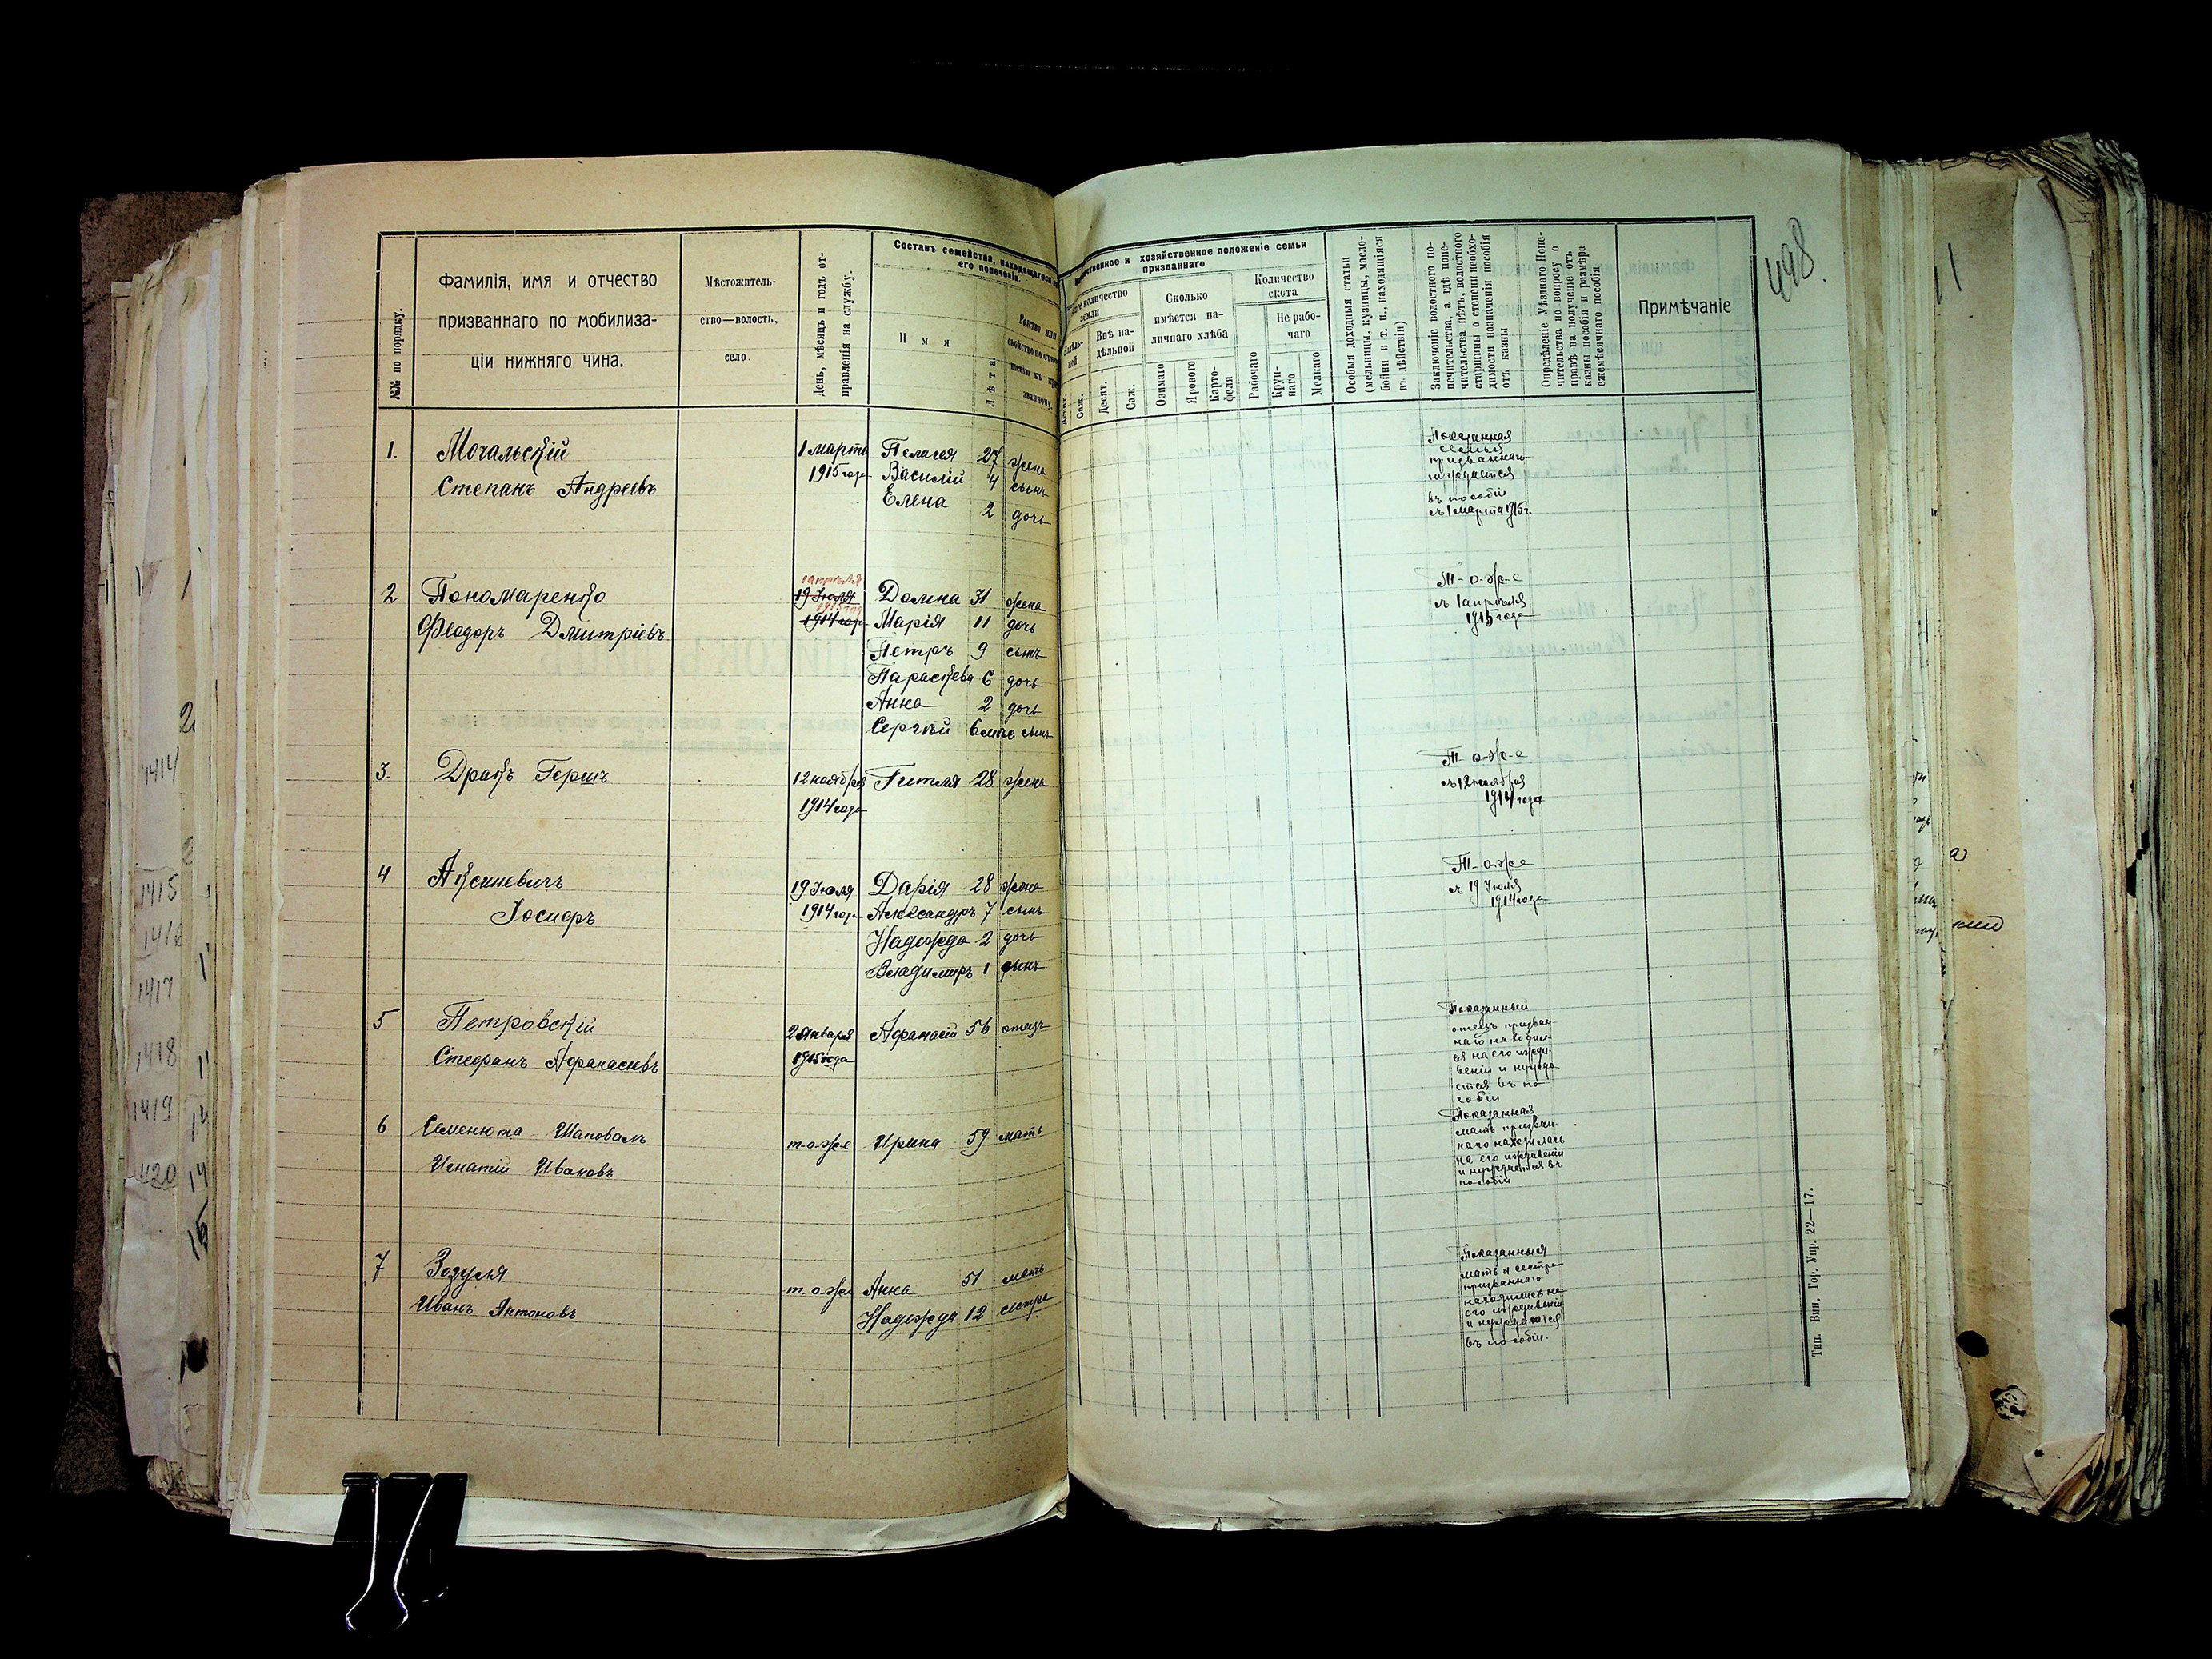 498.
№№ по порядку.
Фамилія, имя и отчество
призваннаго по мобилиза-
ціи нижняго чина.
Мѣстожитель-
ство—волость,
село.
День, мѣсяцъ и годъ от-
правленія на службу.
Составъ семейства, находящагося
его попеченіи.
Имя
Лѣта.
Родство или
свойство по отно-
шенію къ при-
званному.
хозяйственное положеніе семьи
призваннаго
количество
земли
Надѣль-
ной
Внѣ на-
дѣльной
Десят.
Саж.
Десят.
Саж.
Сколько
имѣется на-
личнаго хлѣба
Озимаго
Ярового
Карто-
феля
Количество
скота
Рабочаго
Не рабо-
чаго
Круп-
наго
Мелкаго
Особыя доходныя статьи
(мельницы, кузницы, масло-
бойни и т. п., находящіяся
въ дѣйствіи)
Заключеніе волостного по-
печительства, а гдѣ попе-
чительства нѣтъ, волостного
старшины о степени необхо-
димости назначенія пособія
отъ казны
Опредѣленіе Уѣзднаго Попе-
чительства по вопросу о
правѣ на полученіе отъ
казны пособія и размѣра
ежемѣсячнаго пособія
Примѣчаніе
1. Мочальскій 1 марта Пелагея 27 жена
Степанъ Андреевъ 1915 года Василій 4 сынъ
Елена 2 дочь
Показанная
семья
призваннаго
нуждается
въ пособіи
съ 1 марта 1915 г.
1 апрѣля
2 Пономаренко 19 Іюля Домна 31 жена
1915 год
Феодоръ Дмитріевъ 1914 года Марія 11 дочь
Петръ 9 сынъ
Параскева 6 дочь
Анна 2 дочь
Сергѣй 6 мѣс сынъ
То-же
съ 1 апрѣля
1915 года
3. Дракъ Гершъ 12 ноября Гитля 28 жена
1914 года
То-же
съ 12 ноября
1914 года
4 Аксиневичъ 19 Іюля Дарія 28 жена
Іосифъ 1914 года Александръ 7 сынъ
Надежда 2 дочь
Владимиръ 1 сынъ
То-же
съ 19 Іюля
1914 года
5 Петровскій 2 Января Афанасій 56 отецъ
Стефанъ Афанасіевъ 1915 года
Показанный
отецъ призван-
наго находил-
ся на его ижди-
веніи и нужда
ется въ по
собіи
6 Семенюта Шаповалъ то-же Ирина 59 мать
Игнатій Ивановъ
Показанная
мать призван-
наго находилась
на его иждивеніи
и нуждается въ
пособіи
7 Зозуля то-же Анна 51 мать
Иванъ Антоновъ Надежда 12 сестра
Показанныя
мать и сестра
призваннаго
находились на
его иждивеніи
и нуждаются
въ пособіи.
Тип. Вин. Гор. Упр. 22—17.
1414
1415
1416
1417
1418
1419
1420